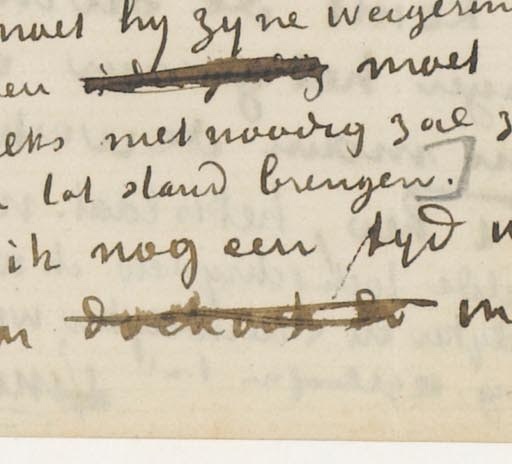 moet hy zyne weigerin
en moet
eks niet noodig zal z
tot stand brengen.
ik nog een tyd